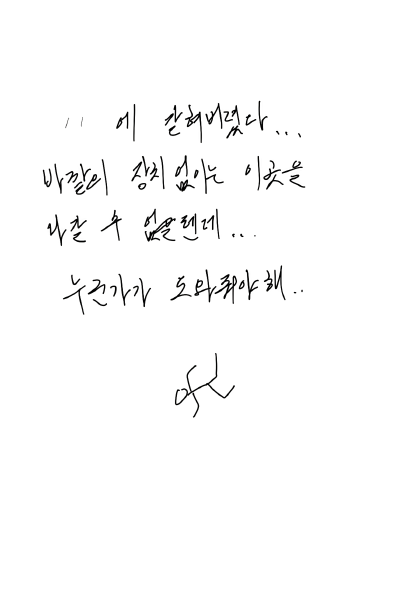 에 갇혀버렸다...
바깥의 장치 없이는 이곳을
나갈 수 없을텐데...
누군가가 도와줘야해..